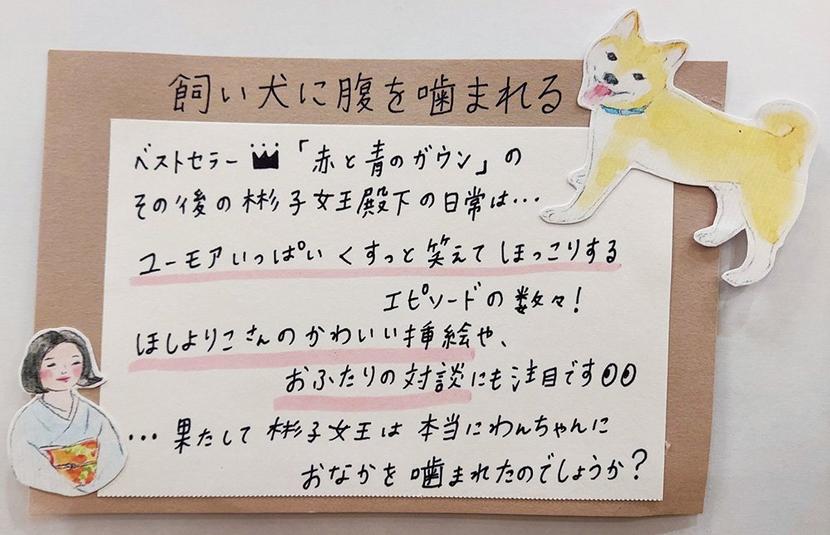 飼い犬に腹を噛まれる
ベストセラー「赤と青のガウン」の
その後の彬子女王殿下の日常は…
ユーモアいっぱい くすっと笑えて ほっこりする
エピソードの数々!
ほしよりこさんのかわいい挿絵や、
おふたりの対談にも注目です
…果たして 彬子女王は 本当にわんちゃんに
おなかを噛まれたのでしょうか?